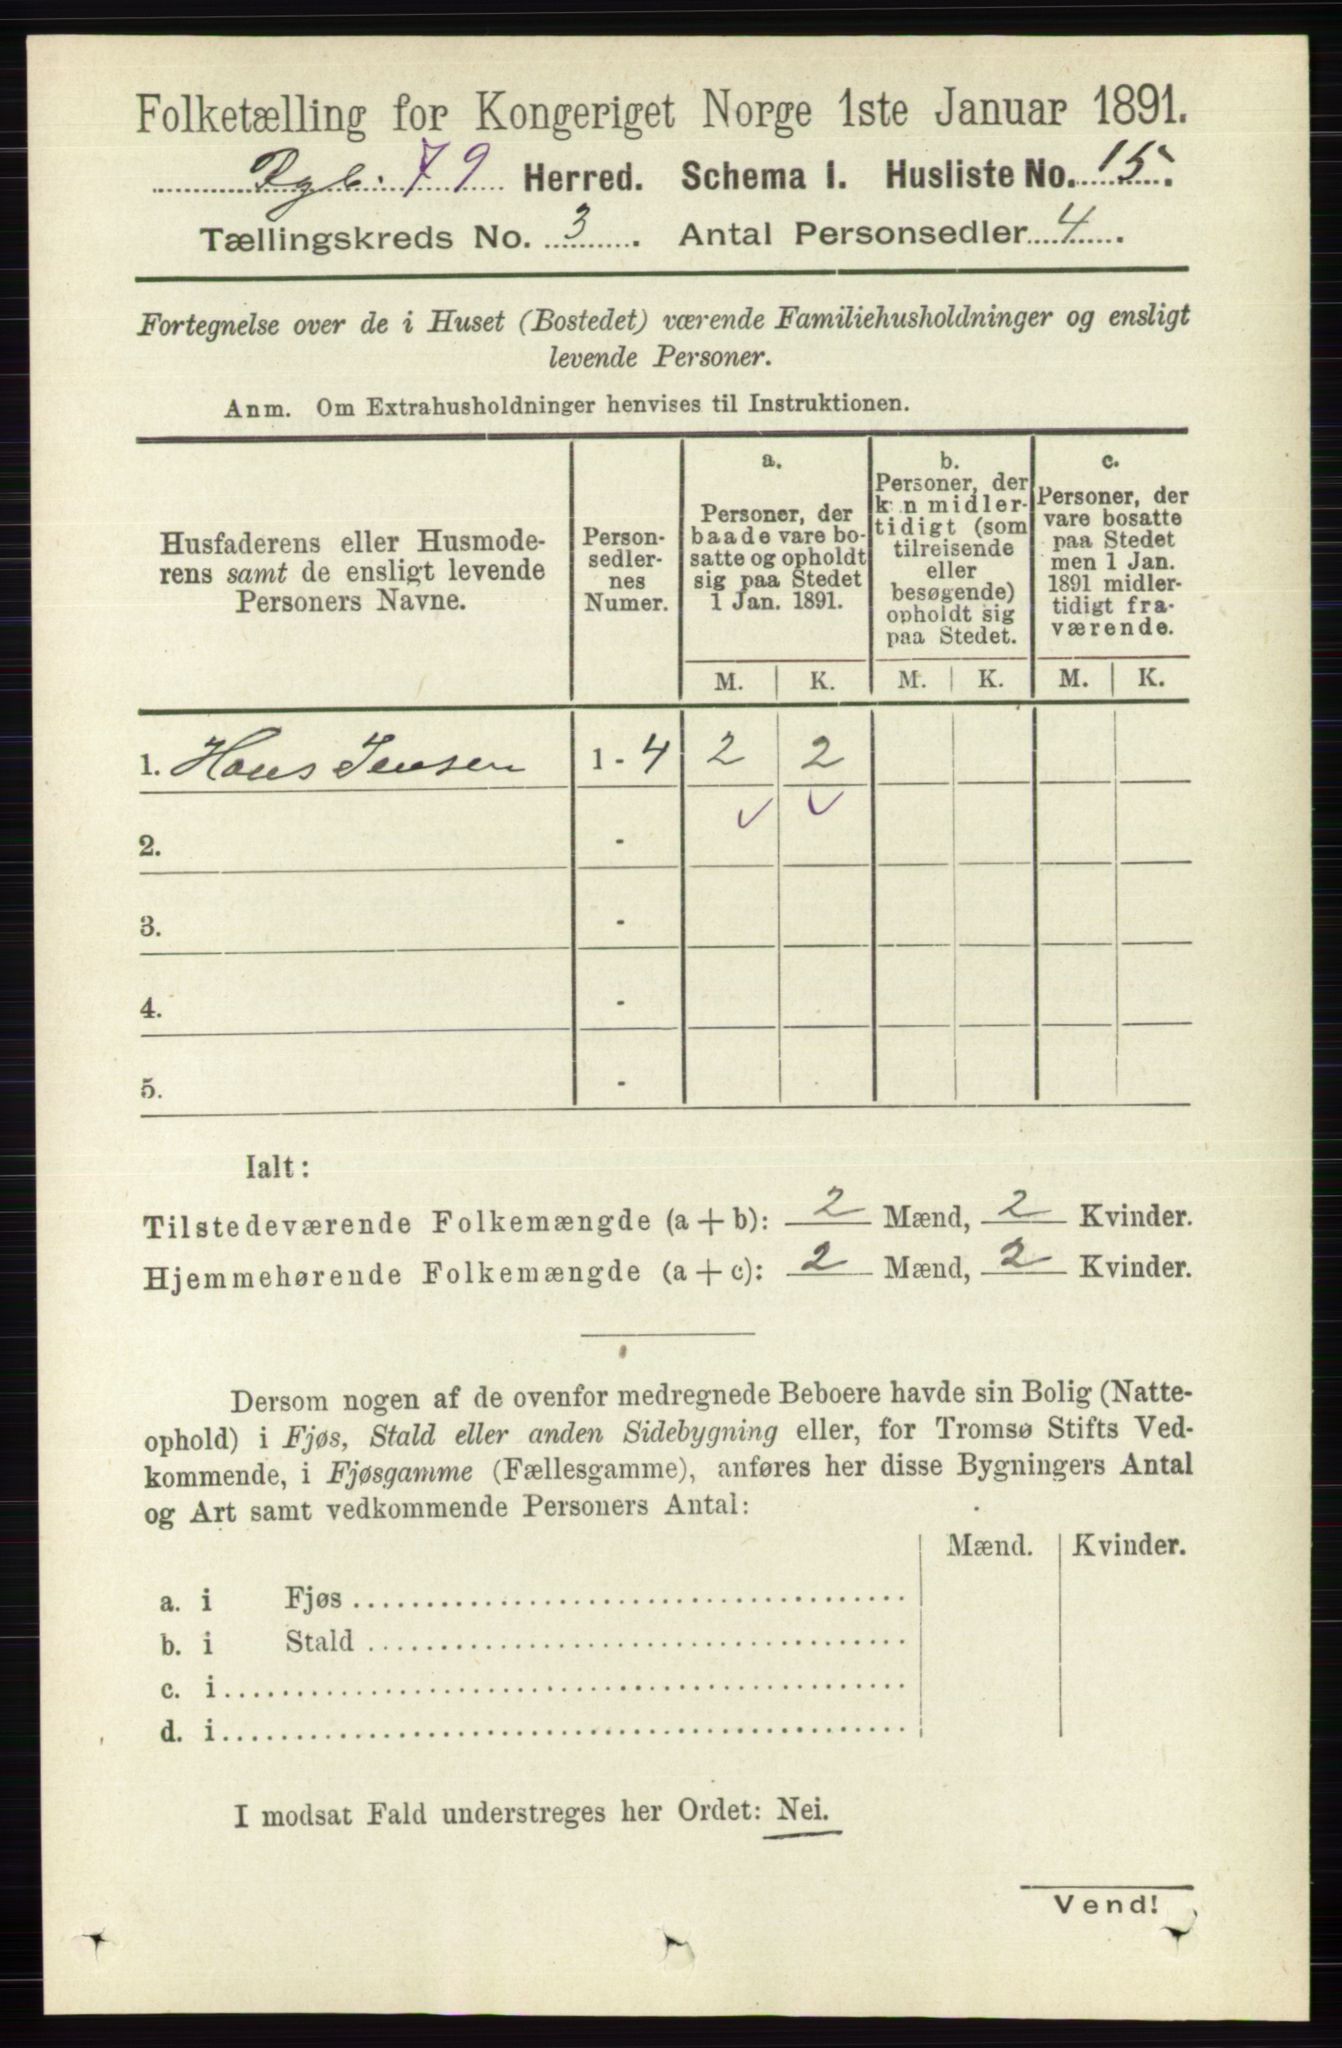 Folketælling for Kongeriget Norge 1ste Januar 1891.
Rgb. 79 Herred. Schema I. Husliste No. 15.
Tællingskreds No. 3. Antal Personsedler 4.
Fortegnelse over de i Huset (Bostedet) værende Familiehusholdninger og ensligt
levende Personer.
Anm. Om Extrahusholdninger henvises til Instruktionen.
Husfaderens eller Husmode-
rens samt de ensligt levende
Personers Navne.
Person-
sedler-
nes
Numer.
a.
Personer, der
baade vare bo-
satte og opholdt
sig paa Stedet
1 Jan. 1891.
b.
Personer, der
k n midler-
tidigt (som
tilreisende
eller
besøgende)
opholdt sig
paa Stedet.
c.
Personer, der
vare bosatte
paa Stedet
men 1 Jan.
1891 midler-
tidigt fra-
værende.
M. K. M. K. M. K.
1. Hans Jensen 1 - 4 2 2
2. -
3. -
4. -
5. -
Ialt:
Tilstedeværende Folkemængde (a + b): 2 Mænd, 2 Kvinder.
Hjemmehørende Folkemængde (a + c): 2 Mænd, 2 Kvinder.
Dersom nogen af de ovenfor medregnede Beboere havde sin Bolig (Natte-
ophold) i Fjøs, Stald eller anden Sidebygning eller, for Tromsø Stifts Ved-
kommende, i Fjøsgamme (Fællesgamme), anføres her disse Bygningers Antal
og Art samt vedkommende Personers Antal:
Mænd. Kvinder.
a. i Fjøs
b. i Stald
c. i
d. i
I modsat Fald understreges her Ordet: Nei.
Vend!